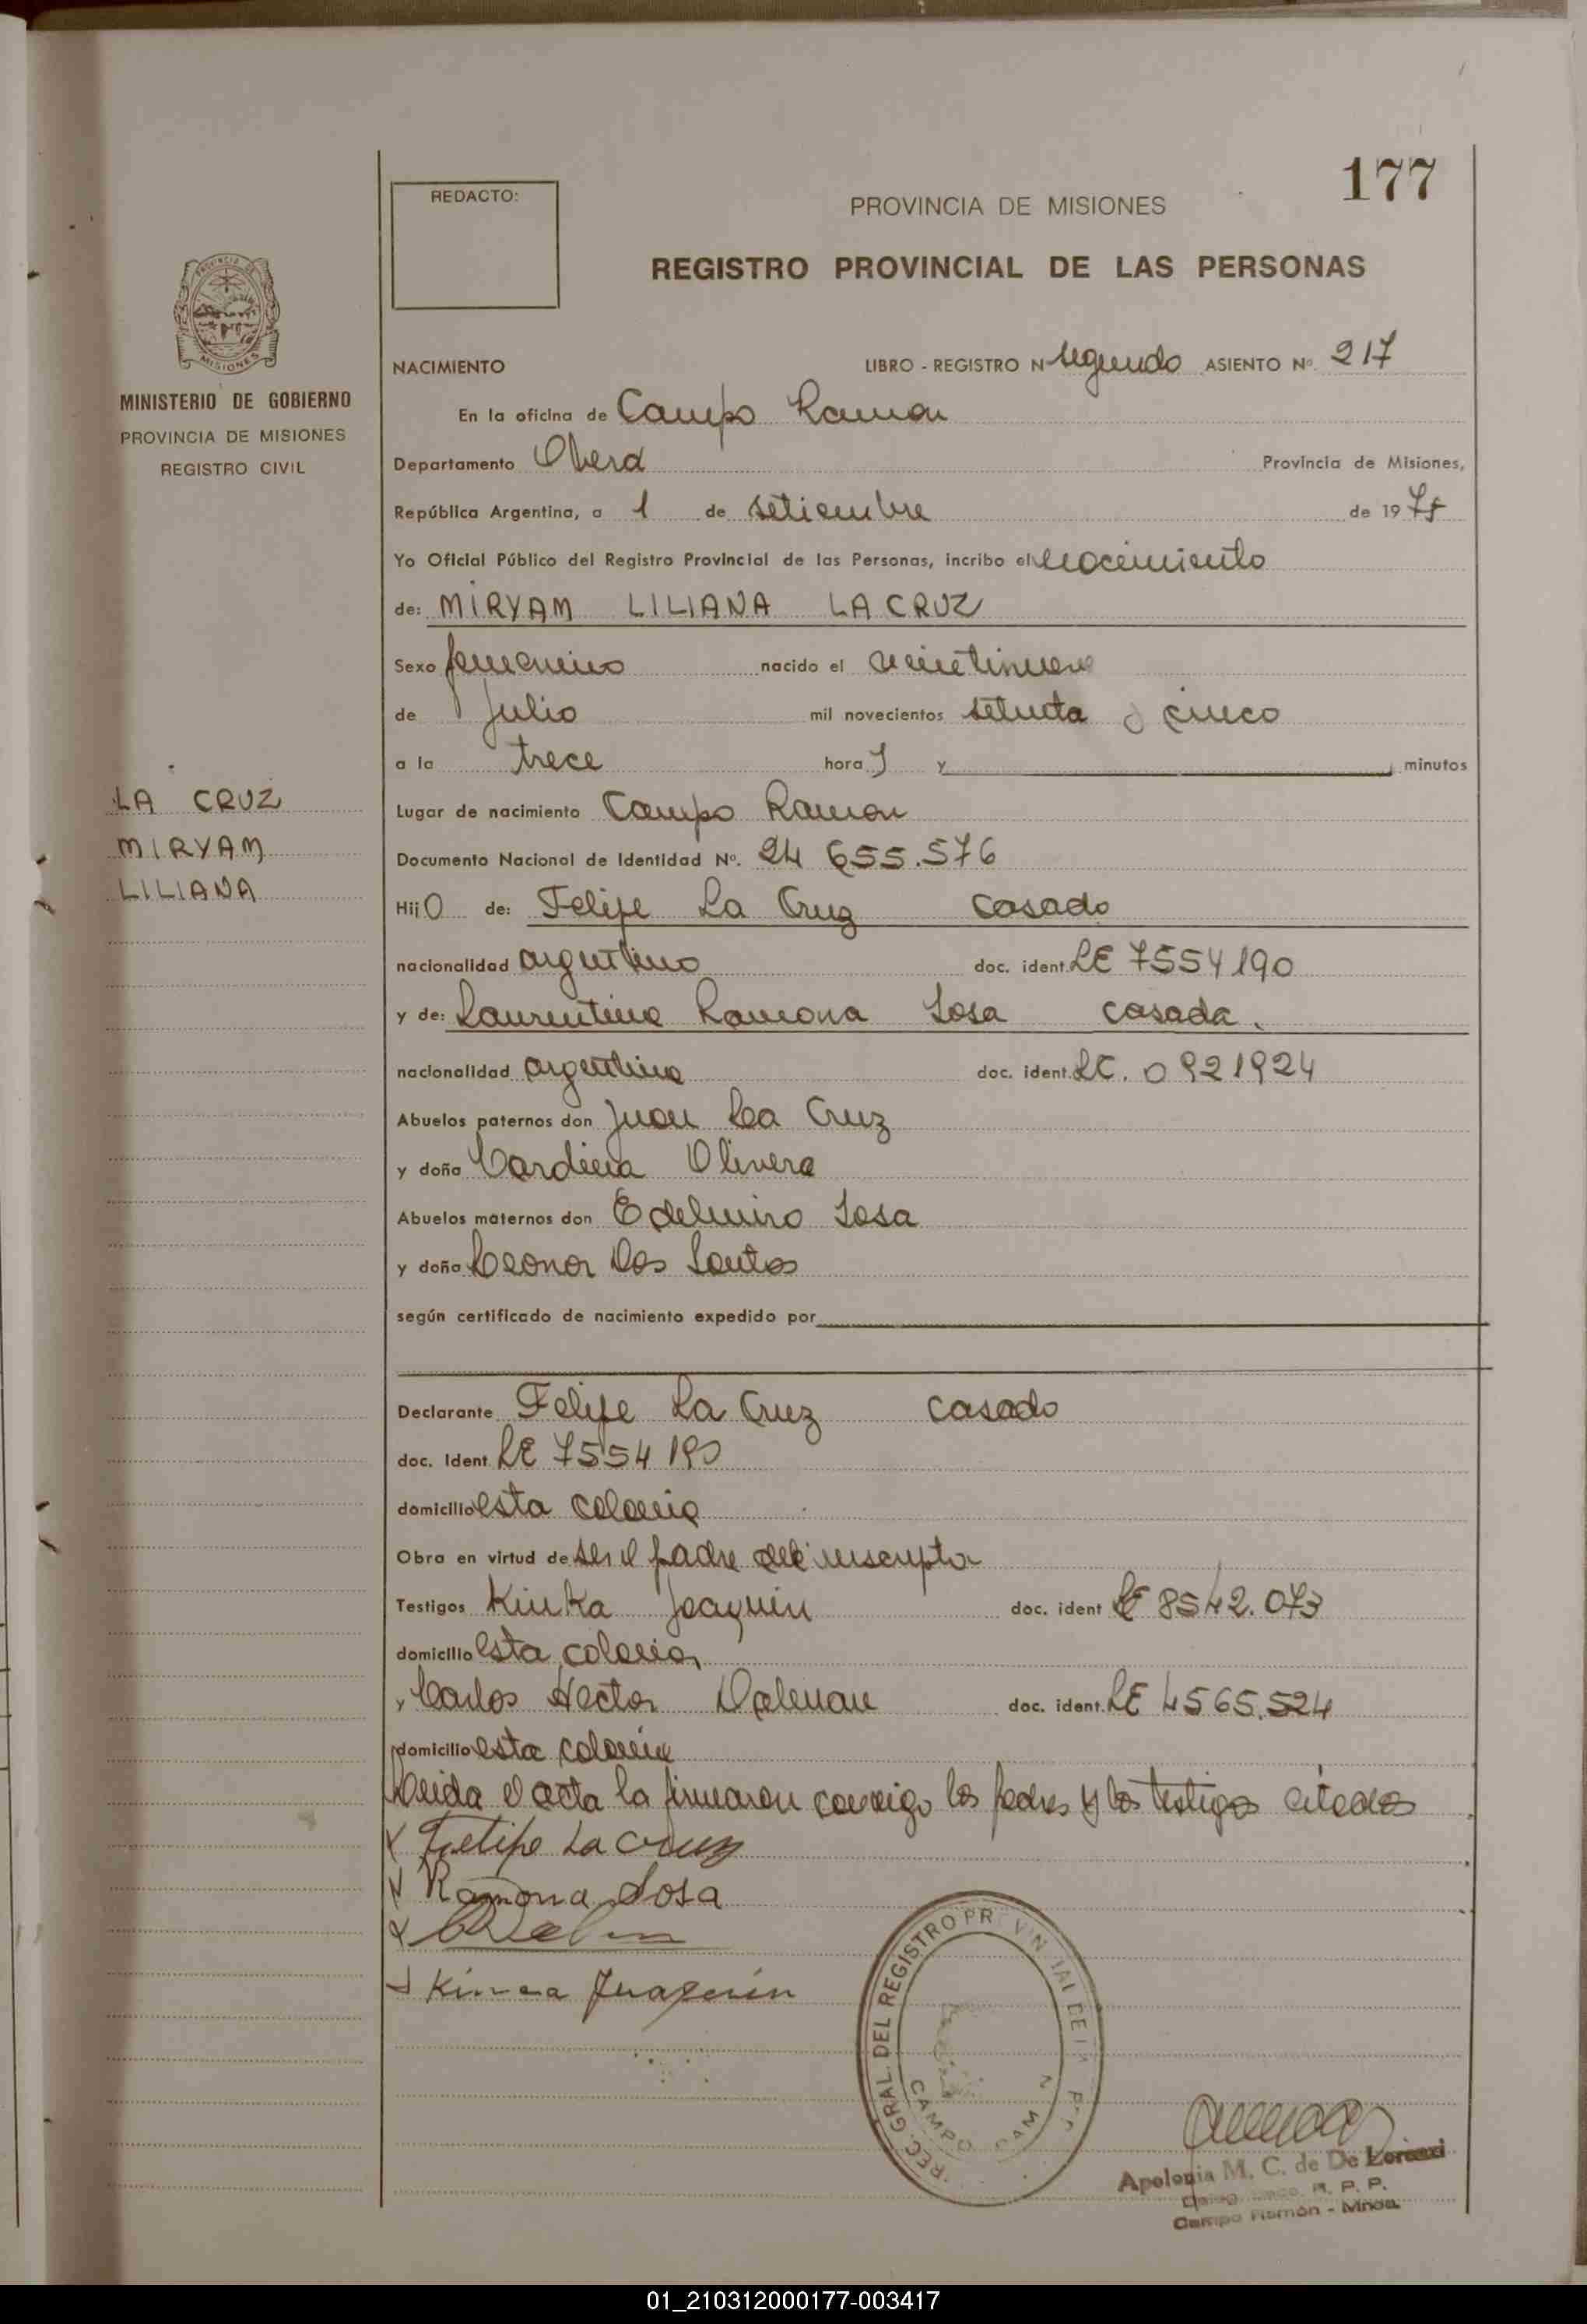 177
REDACTO:
PROVINCIA DE MISIONES
REGISTRO PROVINCIAL DE LAS PERSONAS
MINISTERIO DE GOBIERNO
PROVINCIA DE MISIONES
REGISTRO CIVIL
LA CRUZ
MIRYAM
LILIANA
NACIMIENTO LIBRO - REGISTRO N segundo ASIENTO Nº. 217
En la oficina de Campo Ramon
Departamento Oberá Provincia de Misiones,
República Argentina, a 1 de setiembre de 1975
Yo Oficial Público del Registro Provincial de las Personas, incribo el nacimiento
de: MIRYAM LILIANA LA CRUZ
Sexo femenino nacido el veintinueve
de Julio mil novecientos setenta y cinco
a la trece horas y minutos
Lugar de nacimiento Campo Ramon
Documento Nacional de Identidad Nº. 24 655.576
HijO de: Felipe La Cruz casado
nacionalidad argentino doc. ident. LE 7554190
y de: Laurentina Ramona Sosa casada.
nacionalidad argentina doc. ident. LC. 0921924
Abuelos paternos don Juan La Cruz
y doña Cardina Olivera
Abuelos maternos don Edelmiro Sosa
y doña Leonor Dos Santos
según certificado de nacimiento expedido por
Declarante Felipe La Cruz casado
doc. Ident. LE 7554190
domicilio esta colonia
Obra en virtud de ser el padre del inscripto
Testigos Kinka Joaquin doc. ident LE 8542.073
domicilio esta colonia
y Carlos Hector Dalman doc. ident. LE 4565.524
domicilio esta colonia
Leida el acta la firmaron conmigo los padres y los testigos citados
Felipe La Cruz
Ramona Sosa
Kinca Juaquin
REC. GRAL. DEL REGISTRO PROVINCIAL DE LA P
CAMPO RAMON
Apolonia M. C. de De Lorenzi
R. P. P.
Campo Ramón - Mnes.
01_210312000177-003417